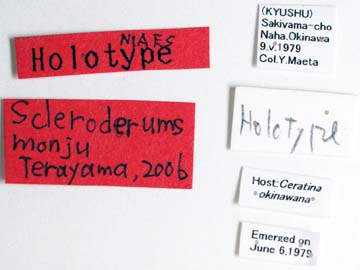 NIAES
Holotype
Scleroderums
monju
Terayama, 2006
(KYUSHU)
Sakiyama-cho
Naha.Okinawa
9.v.1979
Col.Y.Maeta
Holotype
Host:Ceratina
okinawana
Emerged on
June 6,1979